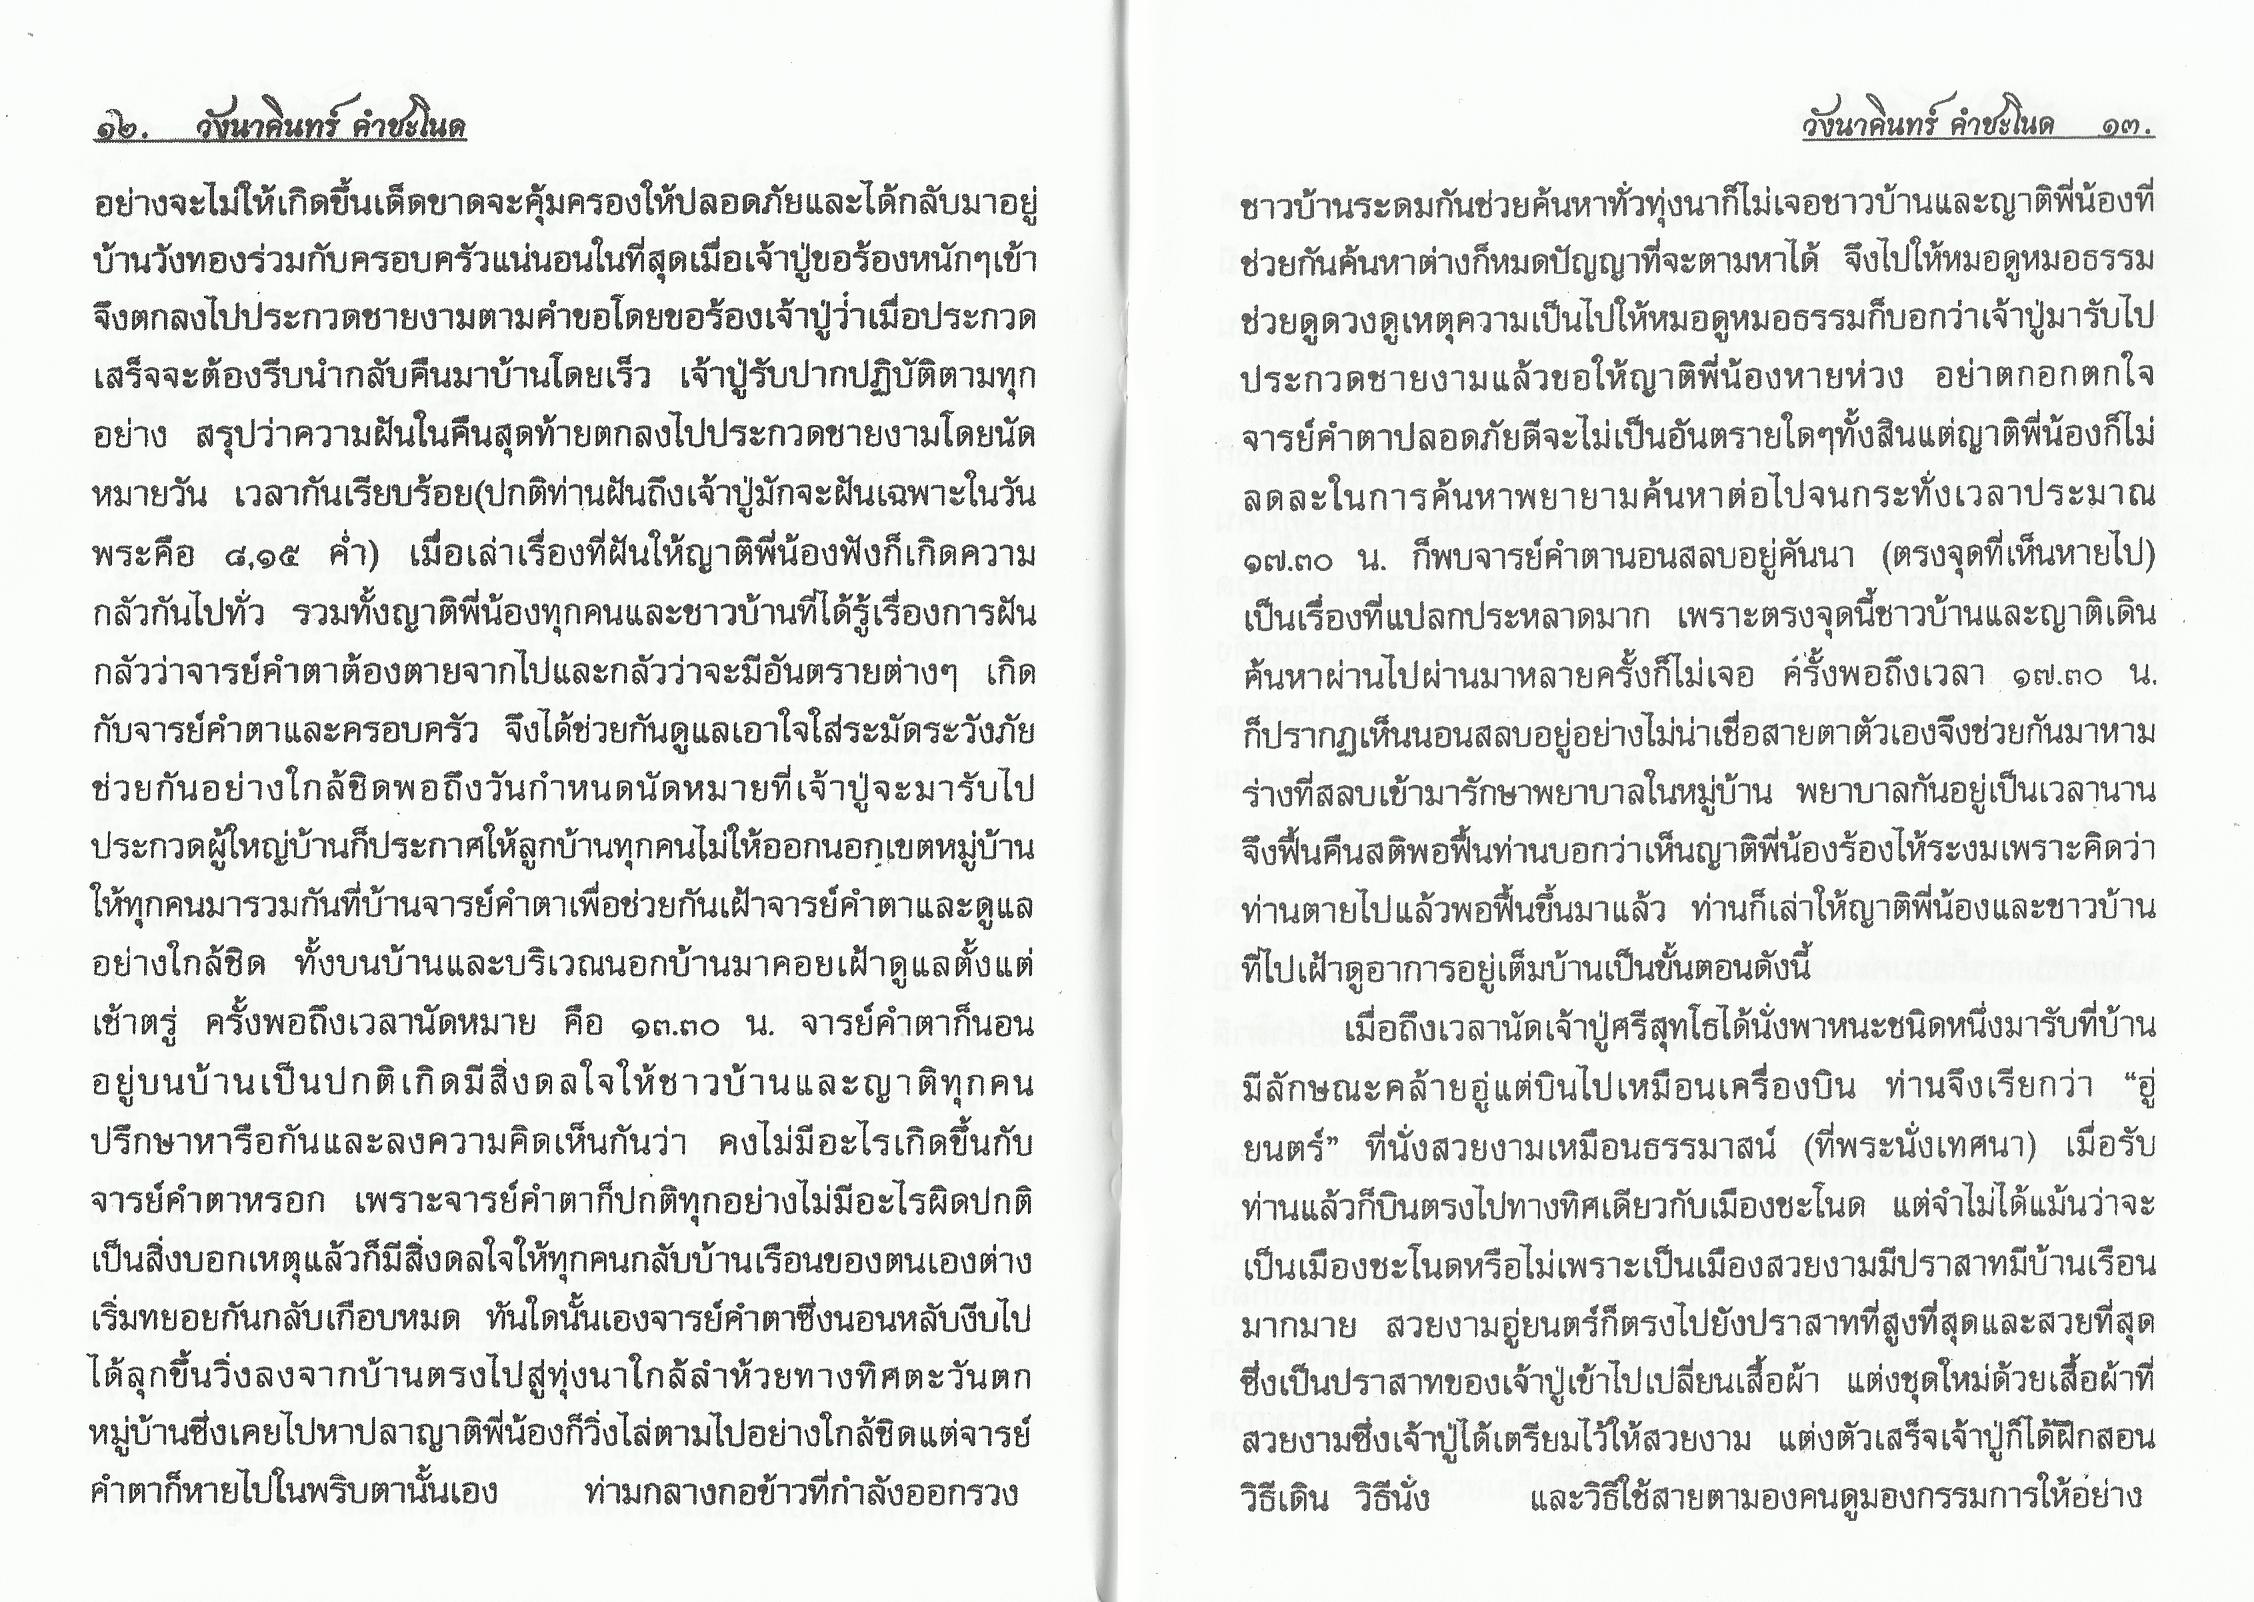 ๑๒. วังนาคินทร์ คำชะโนด
อย่างจะไม่ให้เกิดขึ้นเด็ดขาดจะคุ้มครองให้ปลอดภัยและได้กลับมาอยู่
บ้านวังทองร่วมกับครอบครัวแน่นอนในที่สุดเมื่อเจ้าปู่ขอร้องหนักๆเข้า
จึงตกลงไปประกวดชายงามตามคำขอโดยขอร้องเจ้าปู่ว่าเมื่อประกวด
เสร็จจะต้องรีบนำกลับคืนมาบ้านโดยเร็ว เจ้าปู่รับปากปฏิบัติตามทุก
อย่าง สรุปว่าความฝันในคืนสุดท้ายตกลงไปประกวดชายงามโดยนัด
หมายวัน เวลากันเรียบร้อย(ปกติท่านฝันถึงเจ้าปู่มักจะฝันเฉพาะในวัน
พระคือ ๘,๑๕ ค่ำ) เมื่อเล่าเรื่องที่ฝันให้ญาติพี่น้องฟังก็เกิดความ
กลัวกันไปทั่ว รวมทั้งญาติพี่น้องทุกคนและชาวบ้านที่ได้รู้เรื่องการฝัน
กลัวว่าจารย์คำตาต้องตายจากไปและกลัวว่าจะมีอันตรายต่างๆ เกิด
กับจารย์คำตาและครอบครัว จึงได้ช่วยกันดูแลเอาใจใส่ระมัดระวังภัย
ช่วยกันอย่างใกล้ชิดพอถึงวันกำหนดนัดหมายที่เจ้าปู่จะมารับไป
ประกวดผู้ใหญ่บ้านก็ประกาศให้ลูกบ้านทุกคนไม่ให้ออกนอกเขตหมู่บ้าน
ให้ทุกคนมารวมกันที่บ้านจารย์คำตาเพื่อช่วยกันเฝ้าจารย์คำตาและดูแล
อย่างใกล้ชิด ทั้งบนบ้านและบริเวณนอกบ้านมาคอยเฝ้าดูแลตั้งแต่
เช้าตรู่ ครั้งพอถึงเวลานัดหมาย คือ ๑๓.๓๐ น. จารย์คำตาก็นอน
อยู่บนบ้านเป็นปกติเกิดมีสิ่งดลใจให้ชาวบ้านและญาติทุกคน
ปรึกษาหารือกันและลงความคิดเห็นกันว่า คงไม่มีอะไรเกิดขึ้นกับ
จารย์คำตาหรอก เพราะจารย์คำตาก็ปกติทุกอย่างไม่มีอะไรผิดปกติ
เป็นสิ่งบอกเหตุแล้วก็มีสิ่งดลใจให้ทุกคนกลับบ้านเรือนของตนเองต่าง
เริ่มทยอยกันกลับเกือบหมด ทันใดนั้นเองจารย์คำตาซึ่งนอนหลับงีบไป
ได้ลุกขึ้นวิ่งลงจากบ้านตรงไปสู่ทุ่งนาใกล้ลำห้วยทางทิศตะวันตก
หมู่บ้านซึ่งเคยไปหาปลาญาติพี่น้องก็วิ่งไล่ตามไปอย่างใกล้ชิดแต่จารย์
คำตาก็หายไปในพริบตานั้นเอง ท่ามกลางกอข้าวที่กำลังออกรวง
วังนาคินทร์ คำชะโนด ๑๓.
ชาวบ้านระดมกันช่วยค้นหาทั่วทุ่งนาก็ไม่เจอชาวบ้านและญาติพี่น้องที่
ช่วยกันค้นหาต่างก็หมดปัญญาที่จะตามหาได้ จึงไปให้หมอดูหมอธรรม
ช่วยดูดวงดูเหตุความเป็นไปให้หมอดูหมอธรรมก็บอกว่าเจ้าปู่มารับไป
ประกวดชายงามแล้วขอให้ญาติพี่น้องหายห่วง อย่าตกอกตกใจ
จารย์คำตาปลอดภัยดีจะไม่เป็นอันตรายใดๆทั้งสินแต่ญาติพี่น้องก็ไม่
ลดละในการค้นหาพยายามค้นหาต่อไปจนกระทั่งเวลาประมาณ
๑๗.๓๐ น. ก็พบจารย์คำตานอนสลบอยู่คันนา (ตรงจุดที่เห็นหายไป)
เป็นเรื่องที่แปลกประหลาดมาก เพราะตรงจุดนี้ชาวบ้านและญาติเดิน
ค้นหาผ่านไปผ่านมาหลายครั้งก็ไม่เจอ ครั้งพอถึงเวลา ๑๗.๓๐ น.
ก็ปรากฏเห็นนอนสลบอยู่อย่างไม่น่าเชื่อสายตาตัวเองจึงช่วยกันมาหาม
ร่างที่สลบเข้ามารักษาพยาบาลในหมู่บ้าน พยาบาลกันอยู่เป็นเวลานาน
จึงฟื้นคืนสติพอฟื้นท่านบอกว่าเห็นญาติพี่น้องร้องไห้ระงมเพราะคิดว่า
ท่านตายไปแล้วพอฟื้นขึ้นมาแล้ว ท่านก็เล่าให้ญาติพี่น้องและชาวบ้าน
ที่ไปเฝ้าดูอาการอยู่เต็มบ้านเป็นขั้นตอนดังนี้
เมื่อถึงเวลานัดเจ้าปู่ศรีสุทโธได้นั่งพาหนะชนิดหนึ่งมารับที่บ้าน
มีลักษณะคล้ายอู่แต่บินไปเหมือนเครื่องบิน ท่านจึงเรียกว่า “อู่
ยนตร์” ที่นั่งสวยงามเหมือนธรรมาสน์ (ที่พระนั่งเทศนา) เมื่อรับ
ท่านแล้วก็บินตรงไปทางทิศเดียวกับเมืองชะโนด แต่จำไม่ได้แม้นว่าจะ
เป็นเมืองชะโนดหรือไม่เพราะเป็นเมืองสวยงามมีปราสาทมีบ้านเรือน
มากมาย สวยงามอู่ยนตร์ก็ตรงไปยังปราสาทที่สูงที่สุดและสวยที่สุด
ซึ่งเป็นปราสาทของเจ้าปู่เข้าไปเปลี่ยนเสื้อผ้า แต่งชุดใหม่ด้วยเสื้อผ้าที่
สวยงามซึ่งเจ้าปู่ได้เตรียมไว้ให้สวยงาม แต่งตัวเสร็จเจ้าปู่ก็ได้ฝึกสอน
วิธีเดิน วิธีนั่ง และวิธีใช้สายตามองคนดูมองกรรมการให้อย่าง